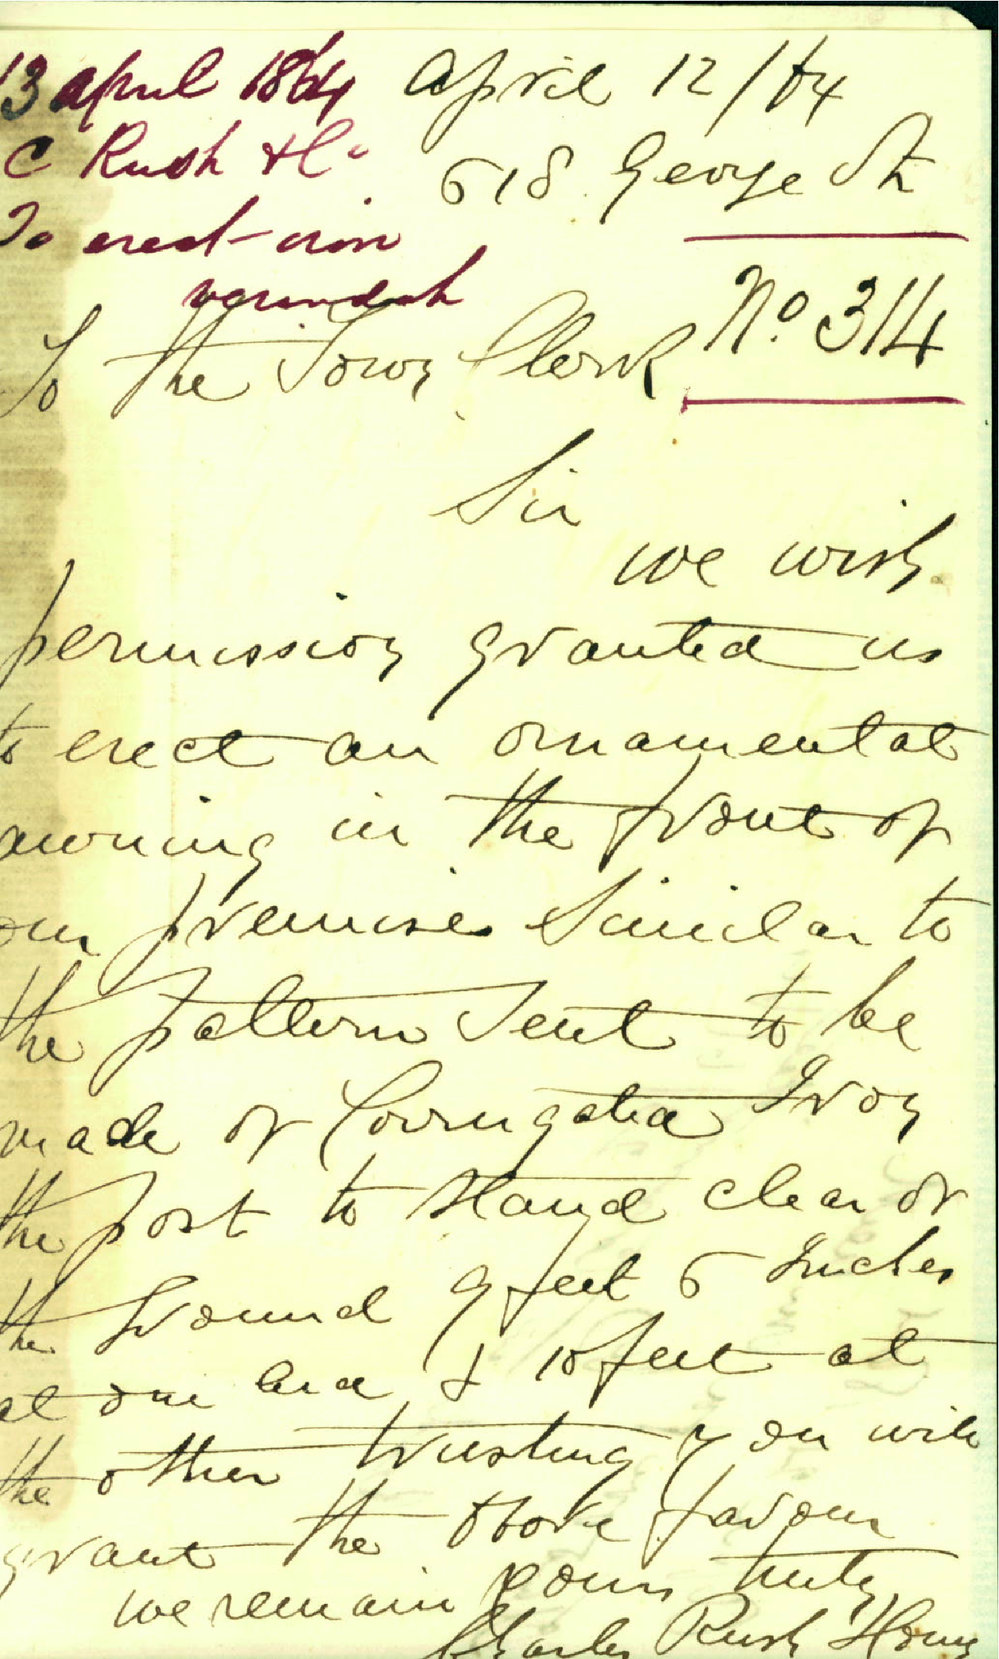 13 april 1864
C Rush & Co
To erect iron
verandah
April 12/64
618 George St
No. 314
To the Town Clerk
Sir
we wish
permission granted us
to erect an ornamental
awning in the front of
our premises Similar to
the pattern Sent to be
made of Corrugated Iron
the post to stand clear of
the Ground 9 feet 6 Inches
at one End & 10 feet at
the other trusting you will
grant the above favour
we remain yours truly
Charles Rush